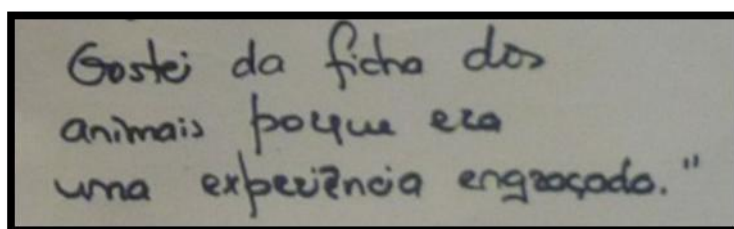 Gostei da ficha dos
animais porque era
uma experiência engraçado."